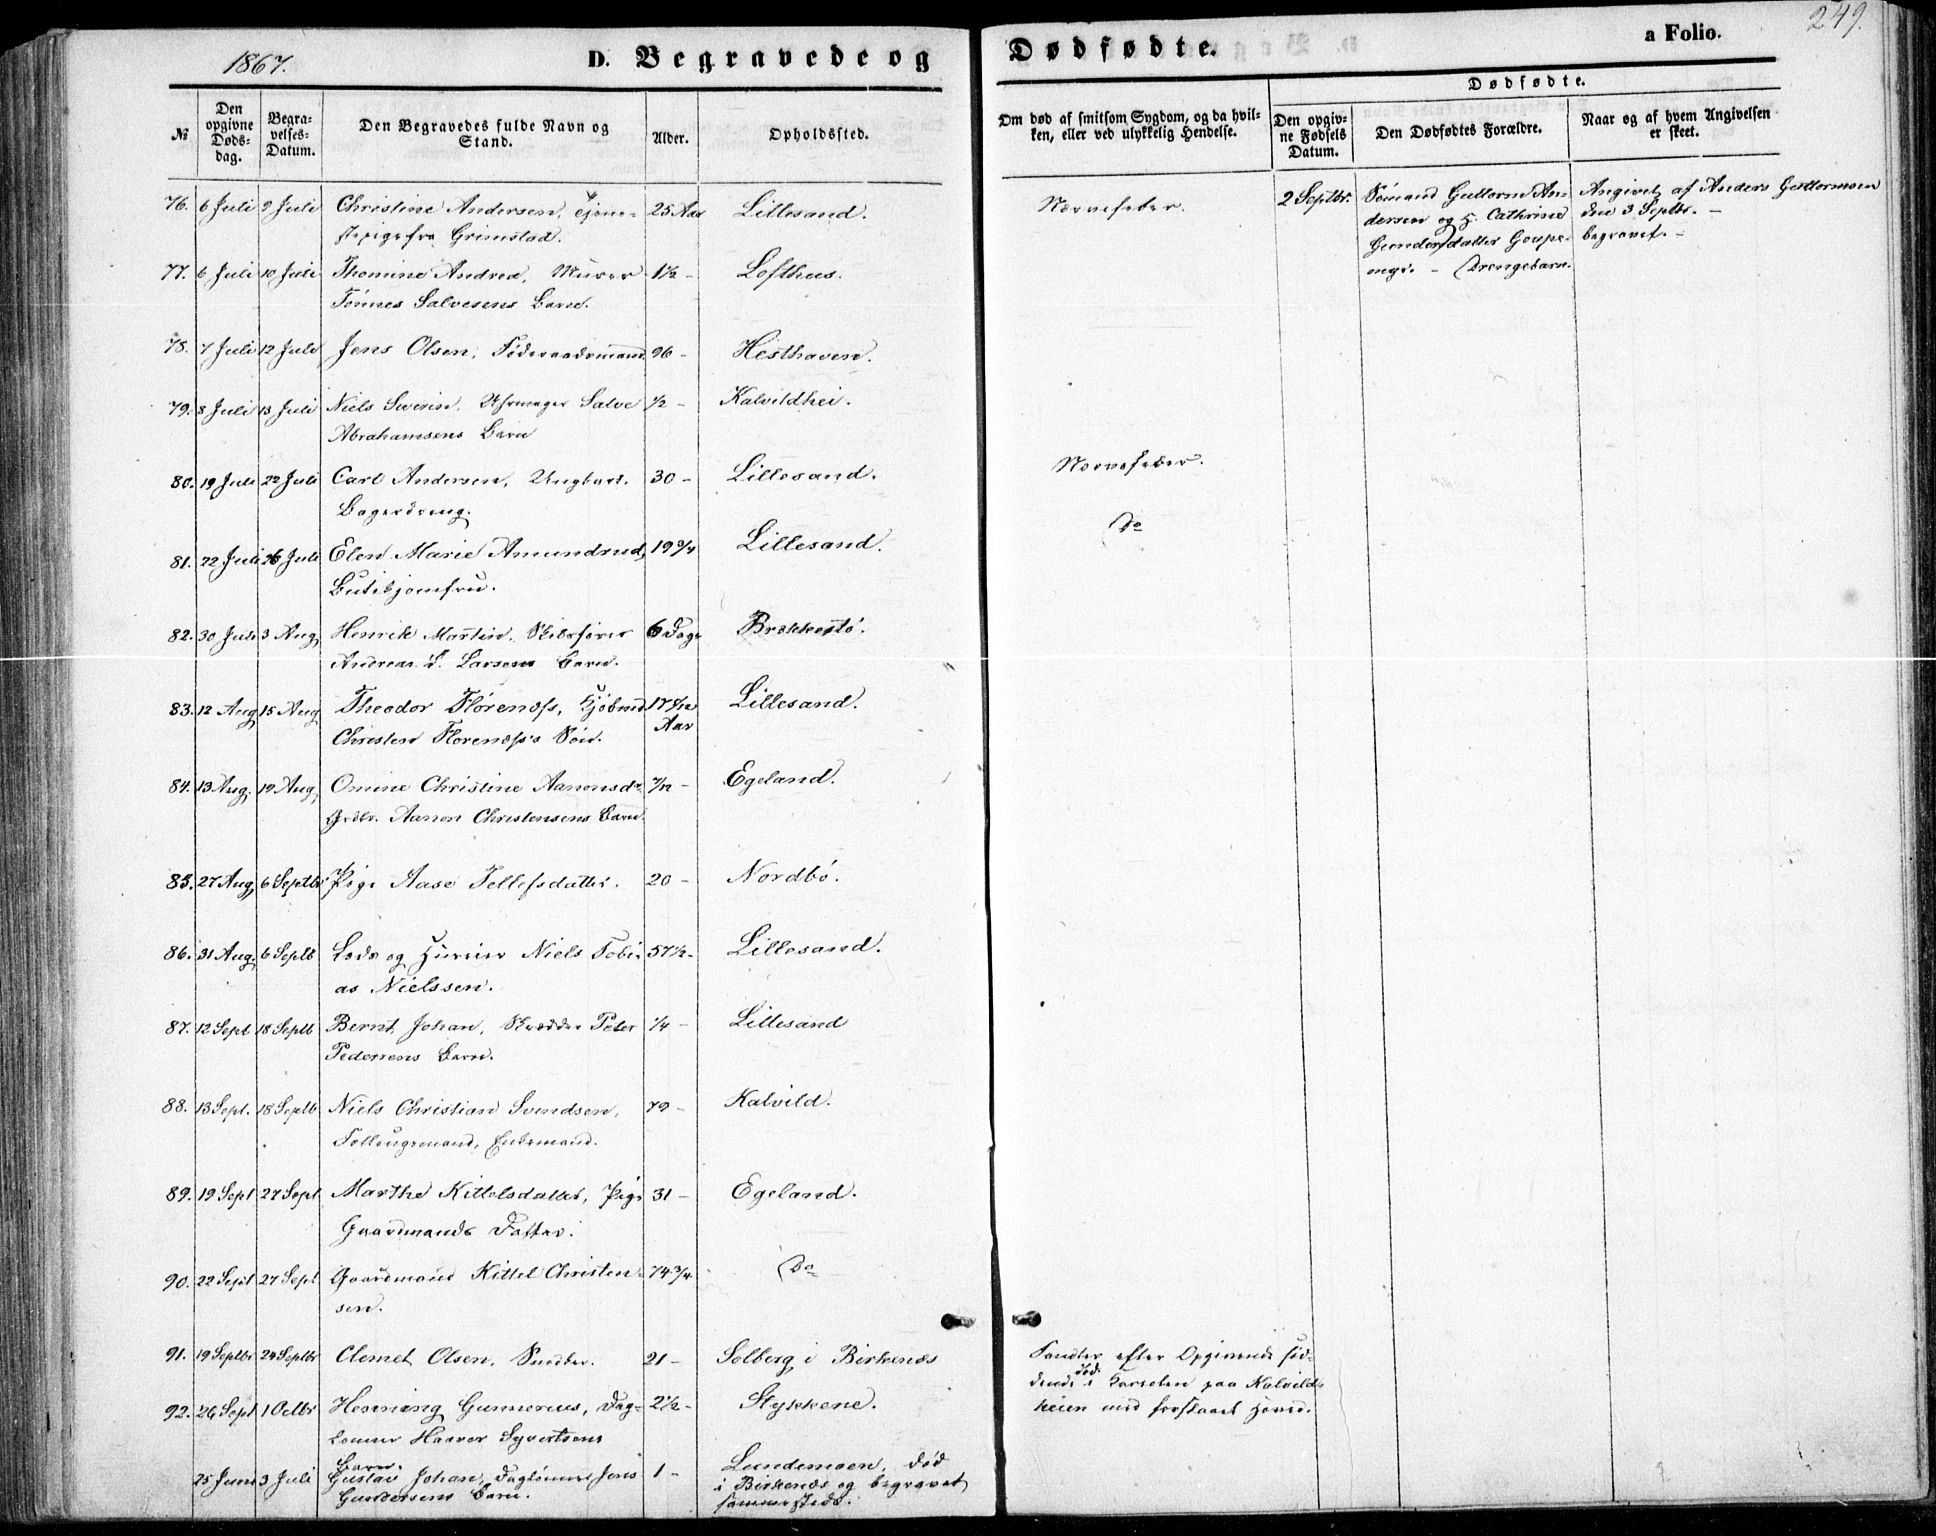 1867.
D. Begravede og Dødfødte.
a Folio.
249.
№
Den opgivne Døds-dag.
Begra-velses-Datum.
Den Begravedes fulde Navn og Stand.
Alder.
Opholdssted.
Om død af smitsom Sygdom, og da hvil-ken, eller ved ulykkelig Hendelse.
Dødfødte.
Den opgiv-ne Fødsels Datum.
Den Dødfødtes Forældre.
Naar og af hvem Angivelsen er skeet.
76. 6 Juli 9 Juli Christine Andersen, Tjene- 25 Aar Lillesand. Nervefeber.
stepige fra Grimstad.
2 Septbr. Sømand Guttorm An- Angivet af Anders Guttormsen
dersen og H. Cathrine den 3 Septbr. –
Gundersdatter begravet. –
Drengebarn.
77. 6 Juli 10 Juli Thomine Andrea, Murer 1½ – Lofthus.
Tønnes Salvesens Barn.
78. 7 Juli 12 Juli Jens Olsen, Føderaadsmand 96 – Hesthaven.
79. 8 Juli 13 Juli Niels Severin, Uhrmager Salve ½ – Kalvildhei.
Abrahamsens Barn
80. 19 Juli 22 Juli Carl Andersen, Ungkarl. 30 – Lillesand. Nervefeber.
Bagerdreng.
81. 22 Juli 26 Juli Elen Marie Amundrud, 19 Lillesand. Do
Butikjomfru.
82. 30 Juli 3 Aug. Henrik Martin, Skibsfører 6 Dage Brækkestø.
Andreas Larsens Barn.
83. 12 Aug 15 Aug Theodor Florenæss, Kjøbmd 17 Lillesand.
Christen Florenæss's Søn. Aar
84. 13 Aug. 19 Aug. Omine Christine Aanonsdr 7/12 – Egeland.
Grdbr. Aanon Christensens Barn.
85. 27 Aug. 6 Septbr Pige Aase Tellefsdatter. 20 – Nordbø.
86. 31 Aug. 6 Septb Lods og Huseier Niels Tobi- 57½ – Lillesand.
as Nielssen.
87. 12 Sept 18 Septb Bernt Johan, Skrædder Peter ¼ – Lillesand
Pedersens Barn.
88. 13 Sept. 18 Septb Niels Christian Svendsen, 79 – Kalvild.
Follougsmand, Enkemand.
89. 19 Sept 27 Sept Marthe Kittelsdatter, Pige 31 – Egeland.
Gaardmands Datter.
90. 22 Sept 27 Sept Gaardmand Kittel Christen- 74¾. Do
sen.
91. 19 Septbr 24 Septbr Clemet Olsen, Snedker. 21 – Solberg i Birkenæs
Fundet efter Opgivende sid-
dende død i Karreten paa Kalvild-
heien med Hoved.
92. 26 Sept 1 Octbr Henning Gunnerius, Dag- 2½ – Stykkene.
lønner Haaver Syvertsens
Barn.
25 Juni 3 Juli Gustav Johan, Daglønner Jens 1 – Lundemoen, død
Gundersens Barn. i Birkenæs og begravet
sammesteds.